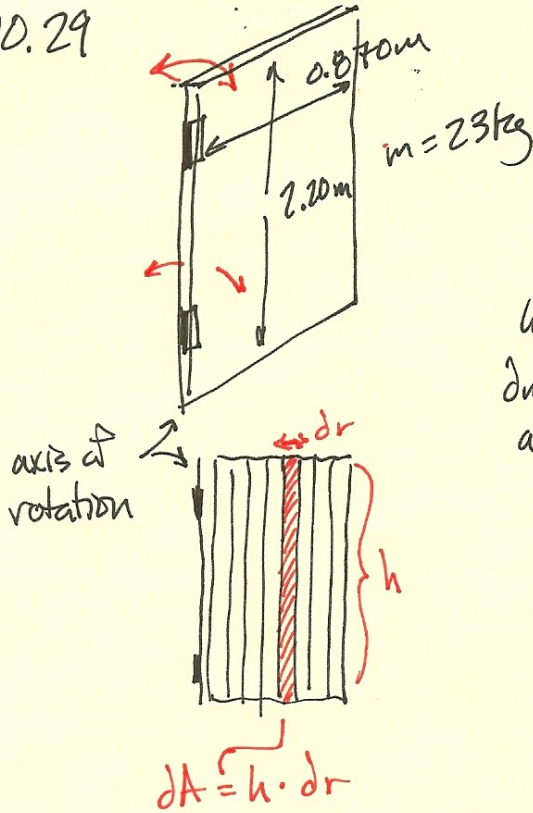 0.29
0.870m
m = 23kg
2.20m
axis of
rotation
dr
h
dA = h · dr